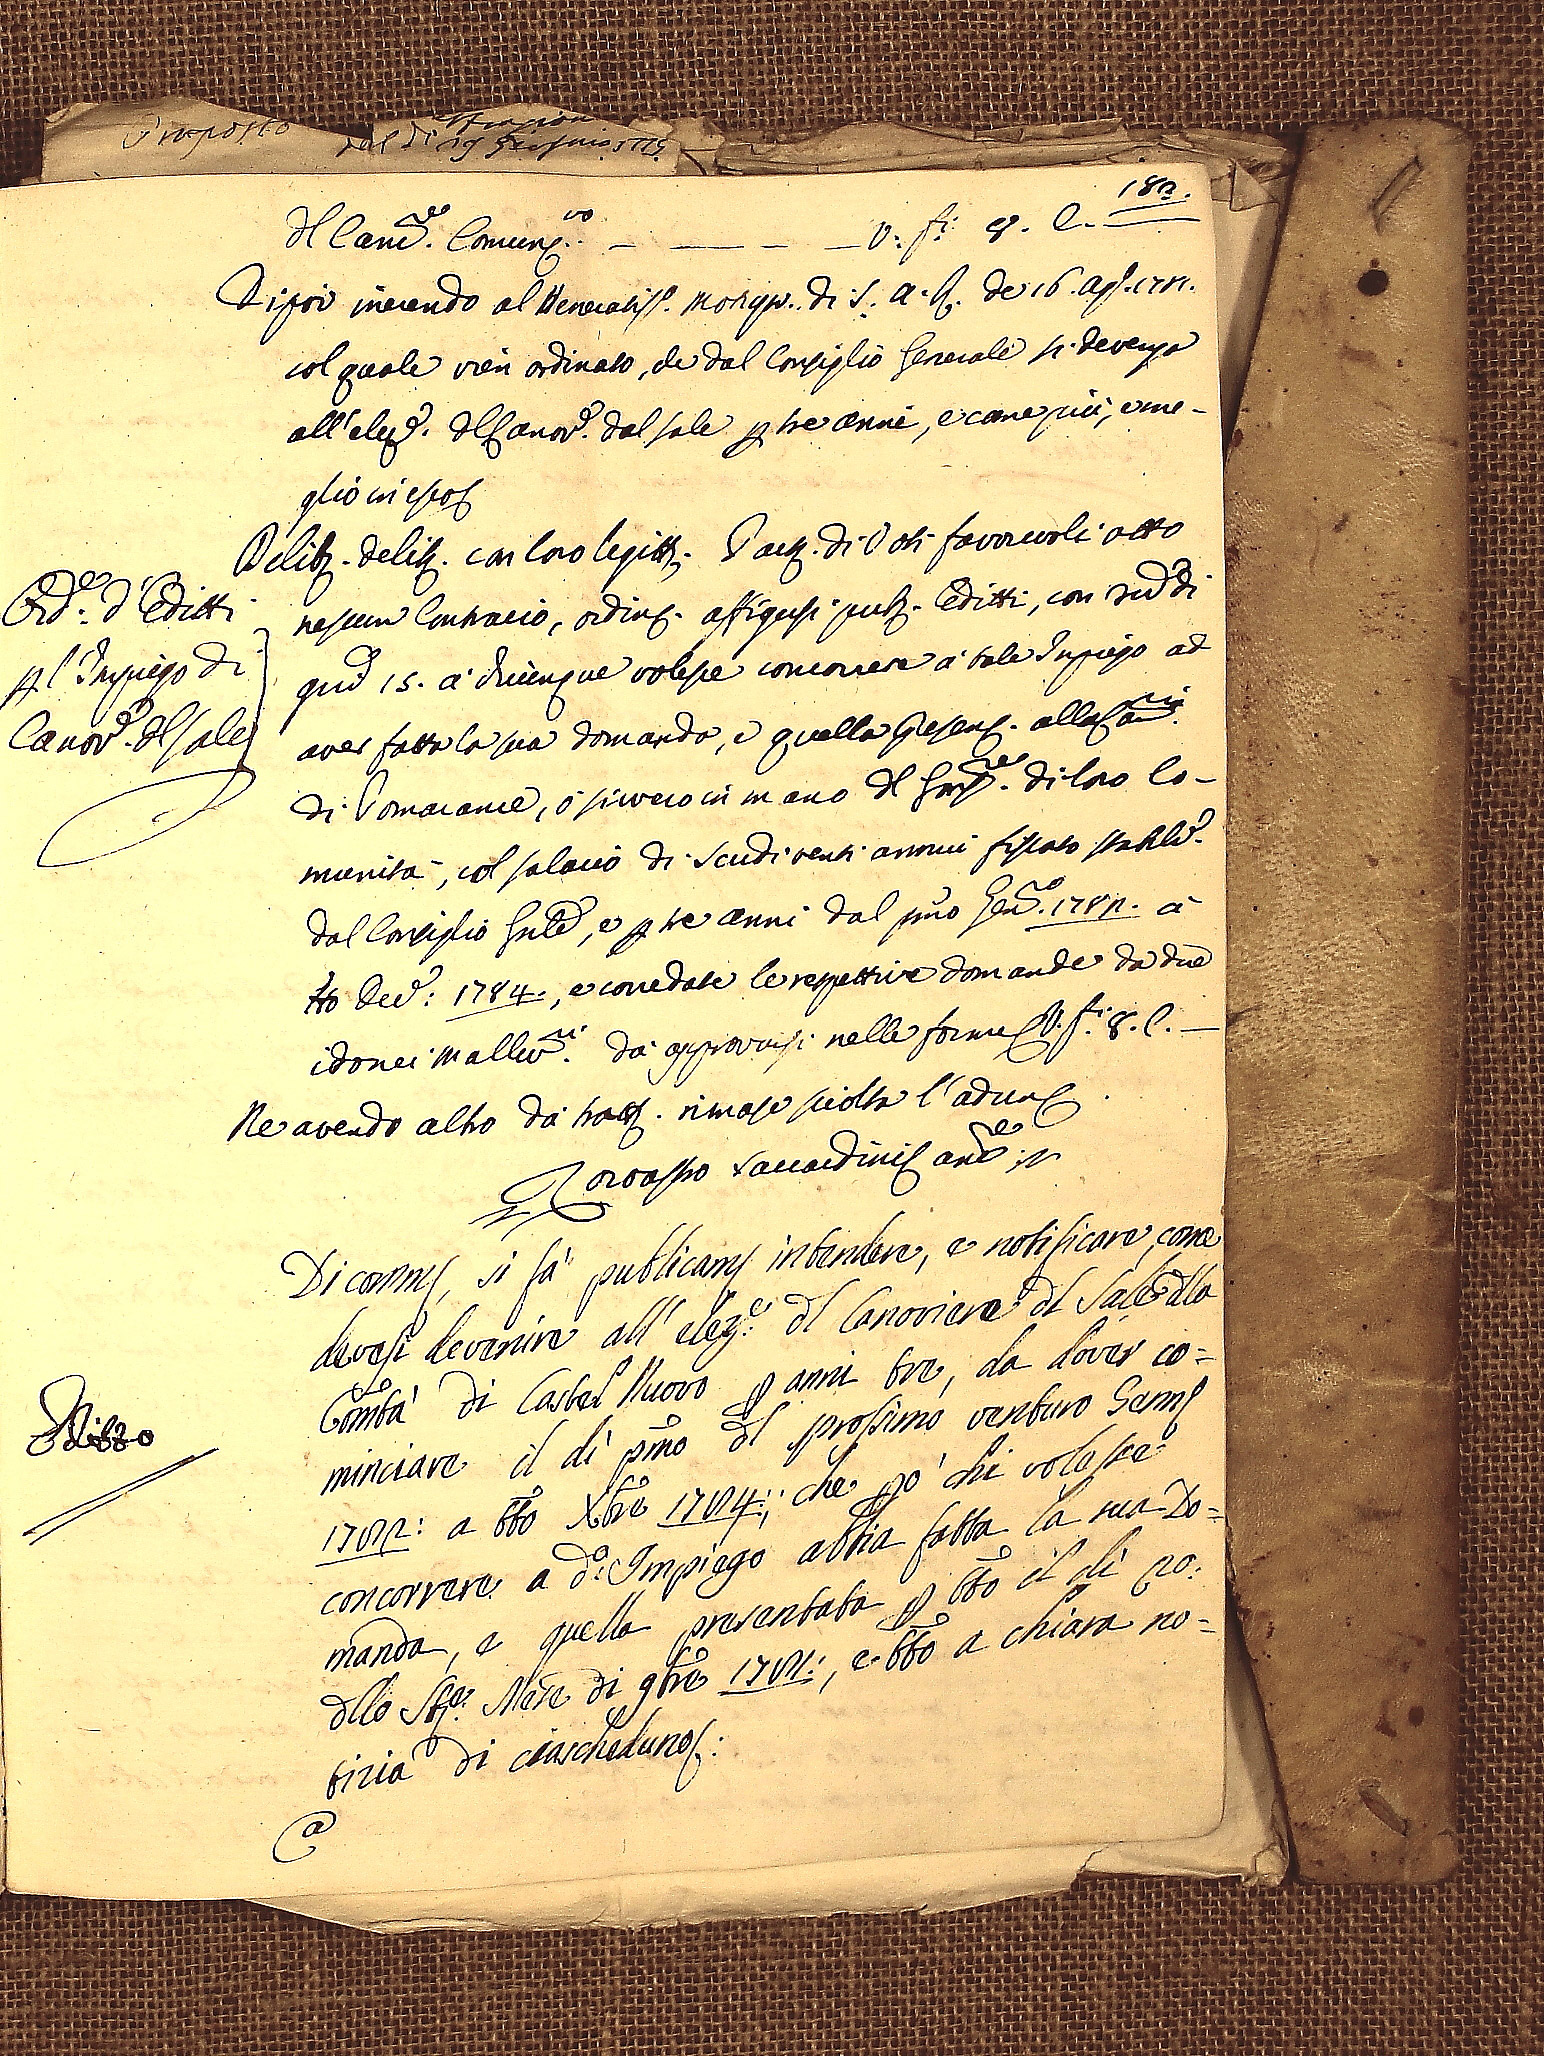 Proposto
dal dì 19
182.
dl Canc.re Comun.vo — — — — V: f.i: 8. C.
Di poi inerendo al Veneratiss. Motupr. di S. A. R. de 16. Ag. 1781.
col quale vien ordinato, che dal Consiglio Generale si devenga
all' elez.e dl Canov.e dal sale p tre anni, e come più, e me-
glio in esso
Delib. delib. con loro legitt. Part. di Voti favorevoli otto
nessun Contrario, ordin. affigersi pub. Editti, con di
Ord.e d'Editti
15. a chiunque volesse concorrere a tale Impiego ad
pl Impiego di
aver fatta la sua domanda, e quella Presen. alla
Canov.e dl sale
di Pomarance, ò sivvero in mano dl di loro Co-
munità, col salario di Scudi venti annui fissato stabil.
dal Consiglio Gnle, e p tre anni dal pmo Gen.o 1782. a
tto Dec: 1784., e corredate le respettive domande da due
idonei Mallev.ri da approvarsi nelle forme V. f.i 8. C. —
Ne avendo altro da tratt. rimase sciolta l'adun.
Di comm, si fà publicam intendere, e notificare, come
devesi devenire all' elez.e dl Canoviere dl Sale dlla
Comtà di Castel Nuovo p anni tre, da dover co=
minciare il dì pmo dl prossimo venturo Genn
Editto
1782: a tto Xbre 1784:; che pò chi volesse
concorrere a d.o Impiego abbia fatta la sua Do=
manda, e quella presentata p tto il dì 20:
dllo Mese di 9bre 1781:, e tto a chiara no=
tizia di ciascheduno:
@